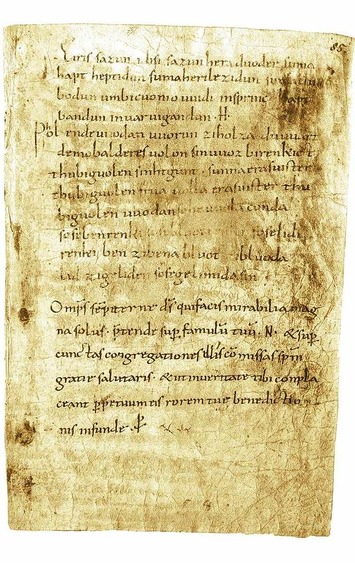 85
Eiris sazun idisi sazun hera duoder suma
hapt heptidun suma herilezidun sumaclu
bodun umbicuonio uuidi insprinc hapt
bandun inuar uigandun· H·
Phol ende uuodan uuorun ziholza du uuart
demobalderes uolon sinuuoz birenkict
thubiguolen sinhtgunt · sunnaerasuister
thubiguolen friia uolla erasuister thu
biguolen uuodan uuola conda
sosebenrenki soselidi
renki ben zibena bluot zi bluoda
lid zigeliden sosegelimida sin
Omp̄s sēpiterne d̄s quifacis mirabilia mag
na solus · p̄tende sup̄ famulū tuū · N · & sup̄
cunctas congregationes illis cōmissas sp̄m
gratie salutaris · & ut inueritate tibi compla
ceant p̄petuum eis rorem tue benedictio
nis infunde